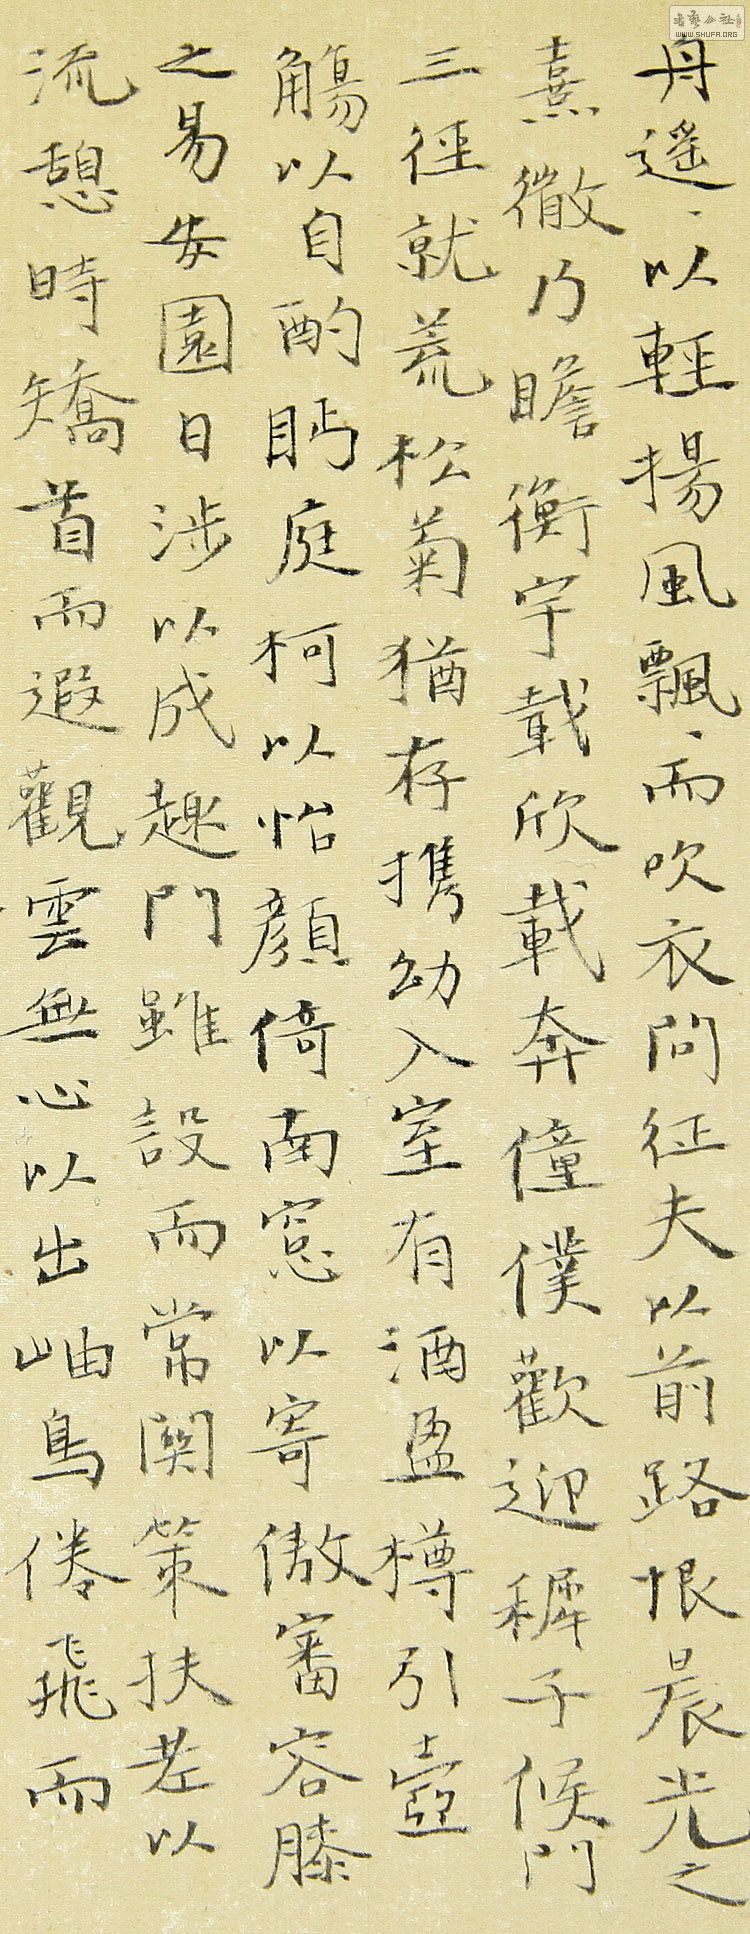 舟遥、以輕揚風飄、而吹衣問征夫以前路恨晨光之
熹微乃瞻衡宇載欣載奔僮僕歡迎穉子候門
三徑就荒松菊猶存携幼入室有酒盈樽引壺
觴以自酌眄庭柯以怡顔倚南窓以寄傲審容膝
之易安園日涉以成趣門雖設而常関策扶老以
流憩時矯首而遐觀雲無心以出岫鳥倦飛而
书艺公社
WWW.SHUFA.ORG